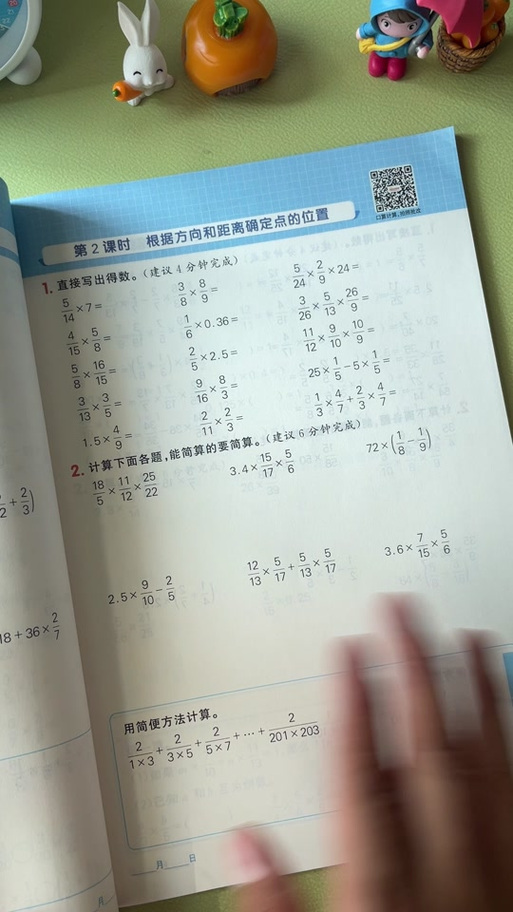 口算计算,拍照批改
第2课时 根据方向和距离确定点的位置
1. 直接写出得数。(建议4分钟完成)
5/14×7= 3/8×8/9= 5/24×2/9×24=
4/15×5/8= 1/6×0.36= 3/26×5/13×26/9=
5/8×16/15= 2/5×2.5= 11/12×9/10×10/9=
3/13×3/5= 9/16×8/3= 25×1/5-5×1/5=
1.5×4/9= 2/11×2/3= 1/3×4/7+2/3×4/7=
2. 计算下面各题,能简算的要简算。(建议6分钟完成)
18/5×11/12×25/22 3.4×15/17×5/6 72×(1/8-1/9)
2.5×9/10-2/5 12/13×5/17+5/13×5/17 3.6×7/15×5/6
用简便方法计算。
2/1×3+2/3×5+2/5×7+…+2/201×203
月 日
+2/3)
18+36×2/7
月